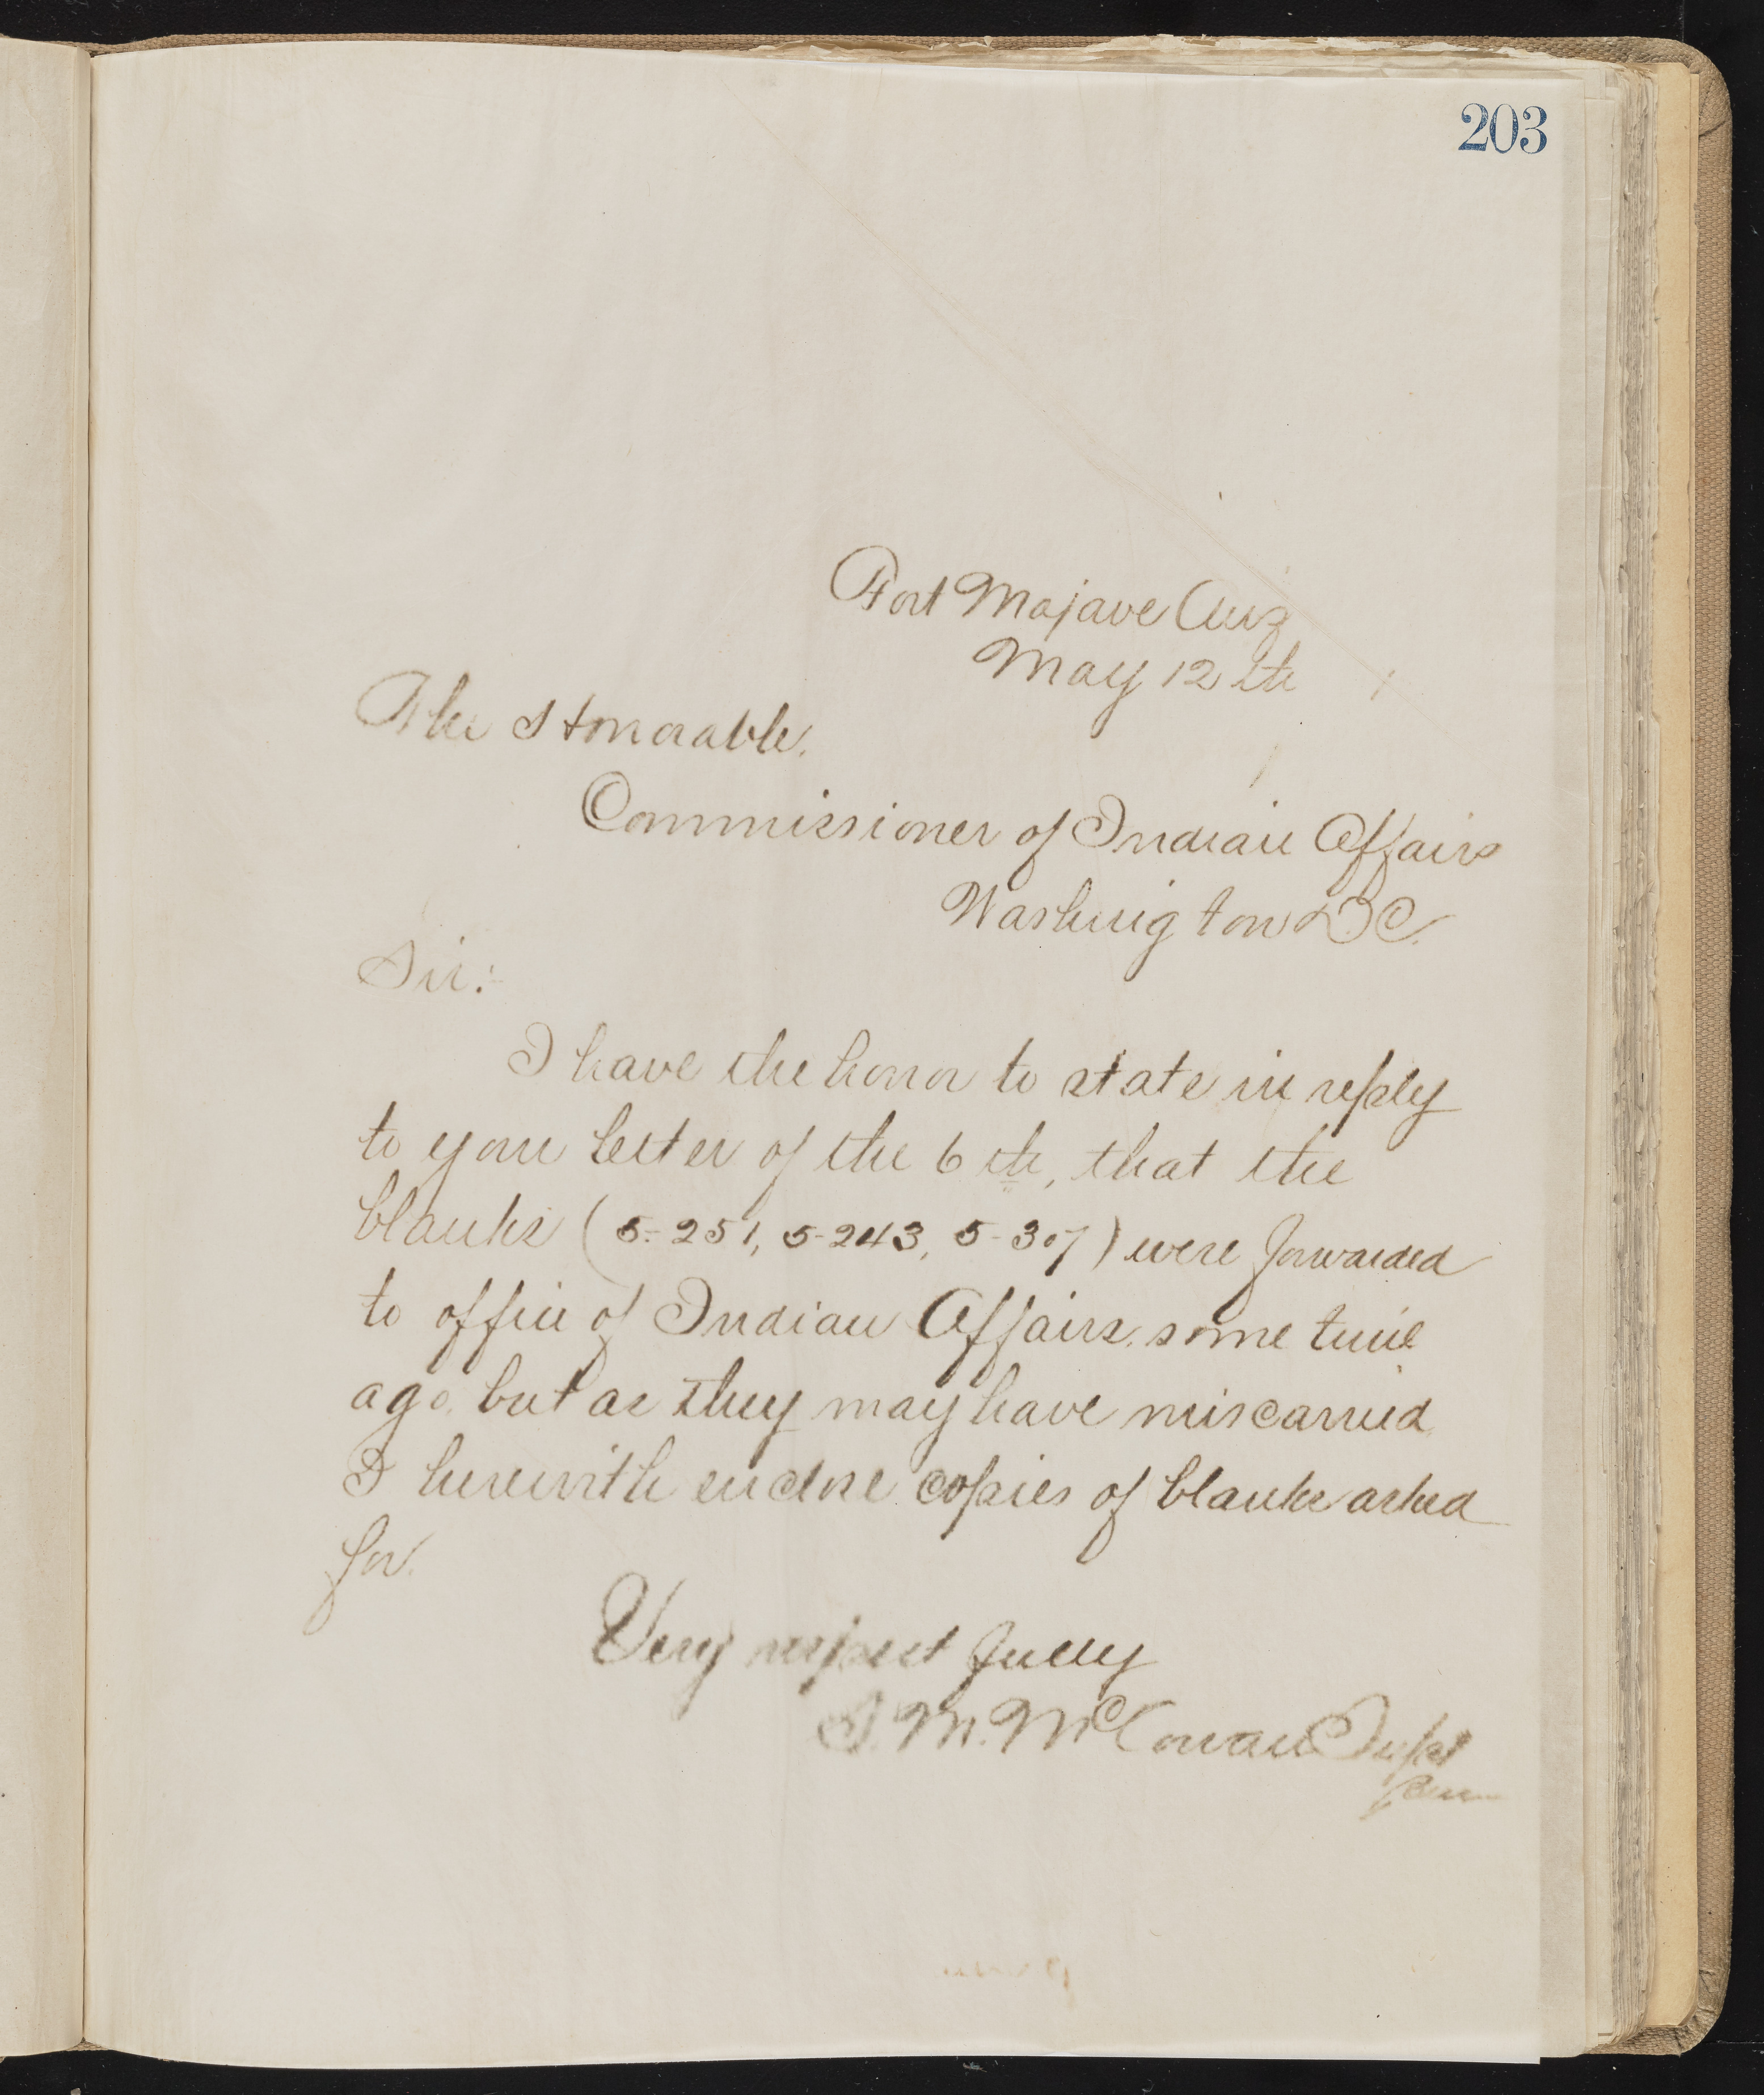 203
Fort Mojave Ariz
May 12th
The Honorable.
Commissioner of Indian Affairs
Washington D.C.
Sir:
I have the honor to state in reply
to your letter of the 6th, that the
blanks (5-251, 5-243, 5-307) were forwarded
to office of Indian Affairs. some time
ago. but as they may have miscarried
I herewith enclose copies of blanks asked
for.
Very respectfully
S. M. McCowan Supt